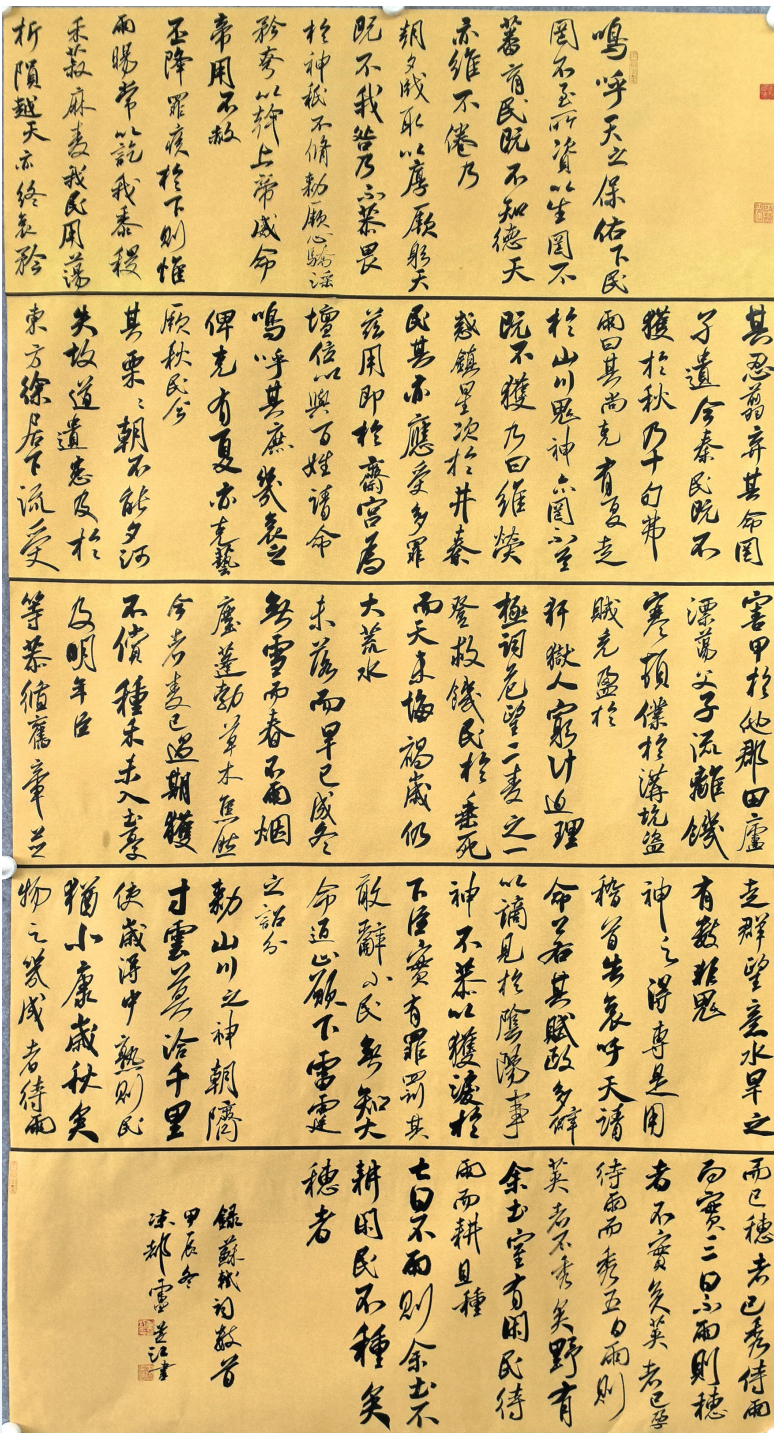 鳴呼天之保佑下民
罔不至所資以生罔不
蕃育民既不知德天
亦維不倦乃
朝夕成取以厚厥躬天
既不我咎乃不恭畏
於神祇不脩勑厥心驕淫
矜夸以干上帝威命
帝用不赦
丕降罪疾於下則惟
雨暘常以訖我黍稷
禾菽麻麥我民用蕩
析隕越天亦終哀矜
其忍翦弃其命罔
孑遺今秦民既不
獲於秋乃十旬弗
雨曰其尚克有夏走
於山川鬼神亦罔不並
既不獲乃曰維熒
惑鎮星次於井秦
民其亦應受多罪
兹用即於齋宮為
壇位以與百姓請命
鳴呼其庶幾哀之
俾克有夏亦克藝
厥秋民今
其栗々朝不能夕河
失故道遺患及於
東方徐居下流受
害甲於他郡田廬
漂蕩父子流離饑
寒頓僕於溝坑盜
賊充盈於
犴獄人窮計迫理
極詞危望二麥之一
登救饑民於垂死
而天未悔禍歲仍
大荒水
未落而旱已成冬
無雪而春不雨烟
塵蓬勃草木焦然
今者麥已過期獲
不償種禾未入土憂
及明年臣
等恭循舊章並
走群望意水旱之
有數非鬼
神之得專是用
稽首告哀吁天請
命若其賦政多僻
以謫見於陰陽事
神不恭以獲淚於
下臣實有罪罰其
敢辭小民無知大
命近止願下雷霆
之詔分
勑山川之神朝隮
寸雲莫洽千里
使歲得中熟則民
猶小康歲秋矣
物之幾成者待雨
而已穗者已秀待雨
而實三日不雨則穗
者不實矣莢者已孕
待雨而秀五日不雨則
莢者不秀矣野有
余土室有閑民待
雨而耕且種
七日不雨則余土不
耕閑民不種矣
穗者
錄蘇軾詞數首
甲辰冬